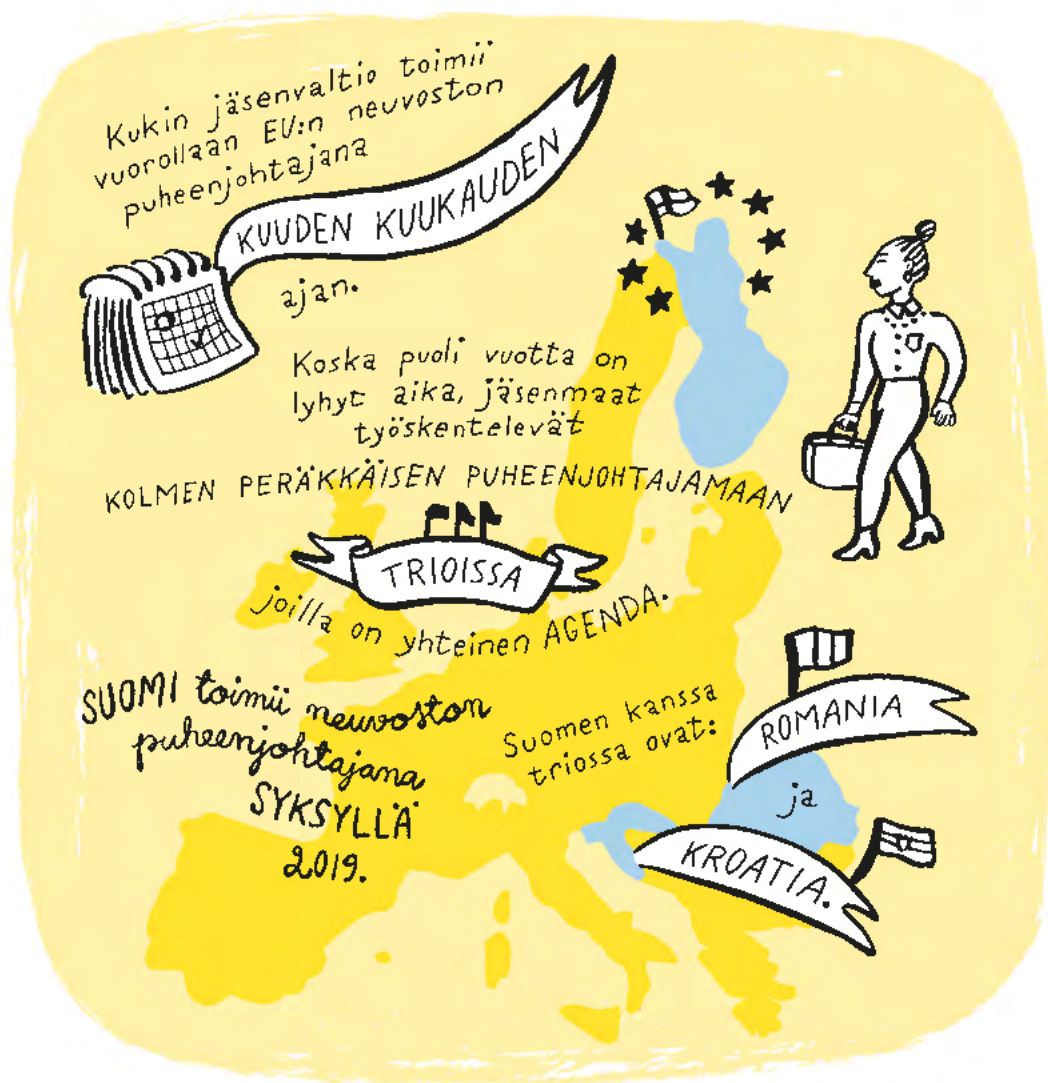 Kukin jäsenvaltio toimii
vuorollaan EU:n neuvoston
puheenjohtajana
KUUDEN KUUKAUDEN
ajan.
Koska puoli vuotta on
lyhyt aika, jäsenmaat
työskentelevät
KOLMEN PERÄKKÄISEN PUHEENJOHTAJAMAAN
TRIOISSA
joilla on yhteinen AGENDA.
SUOMI toimii neuvoston
puheenjohtajana
SYKSYLLÄ
2019.
Suomen kanssa
triossa ovat:
ROMANIA
ja
KROATIA.